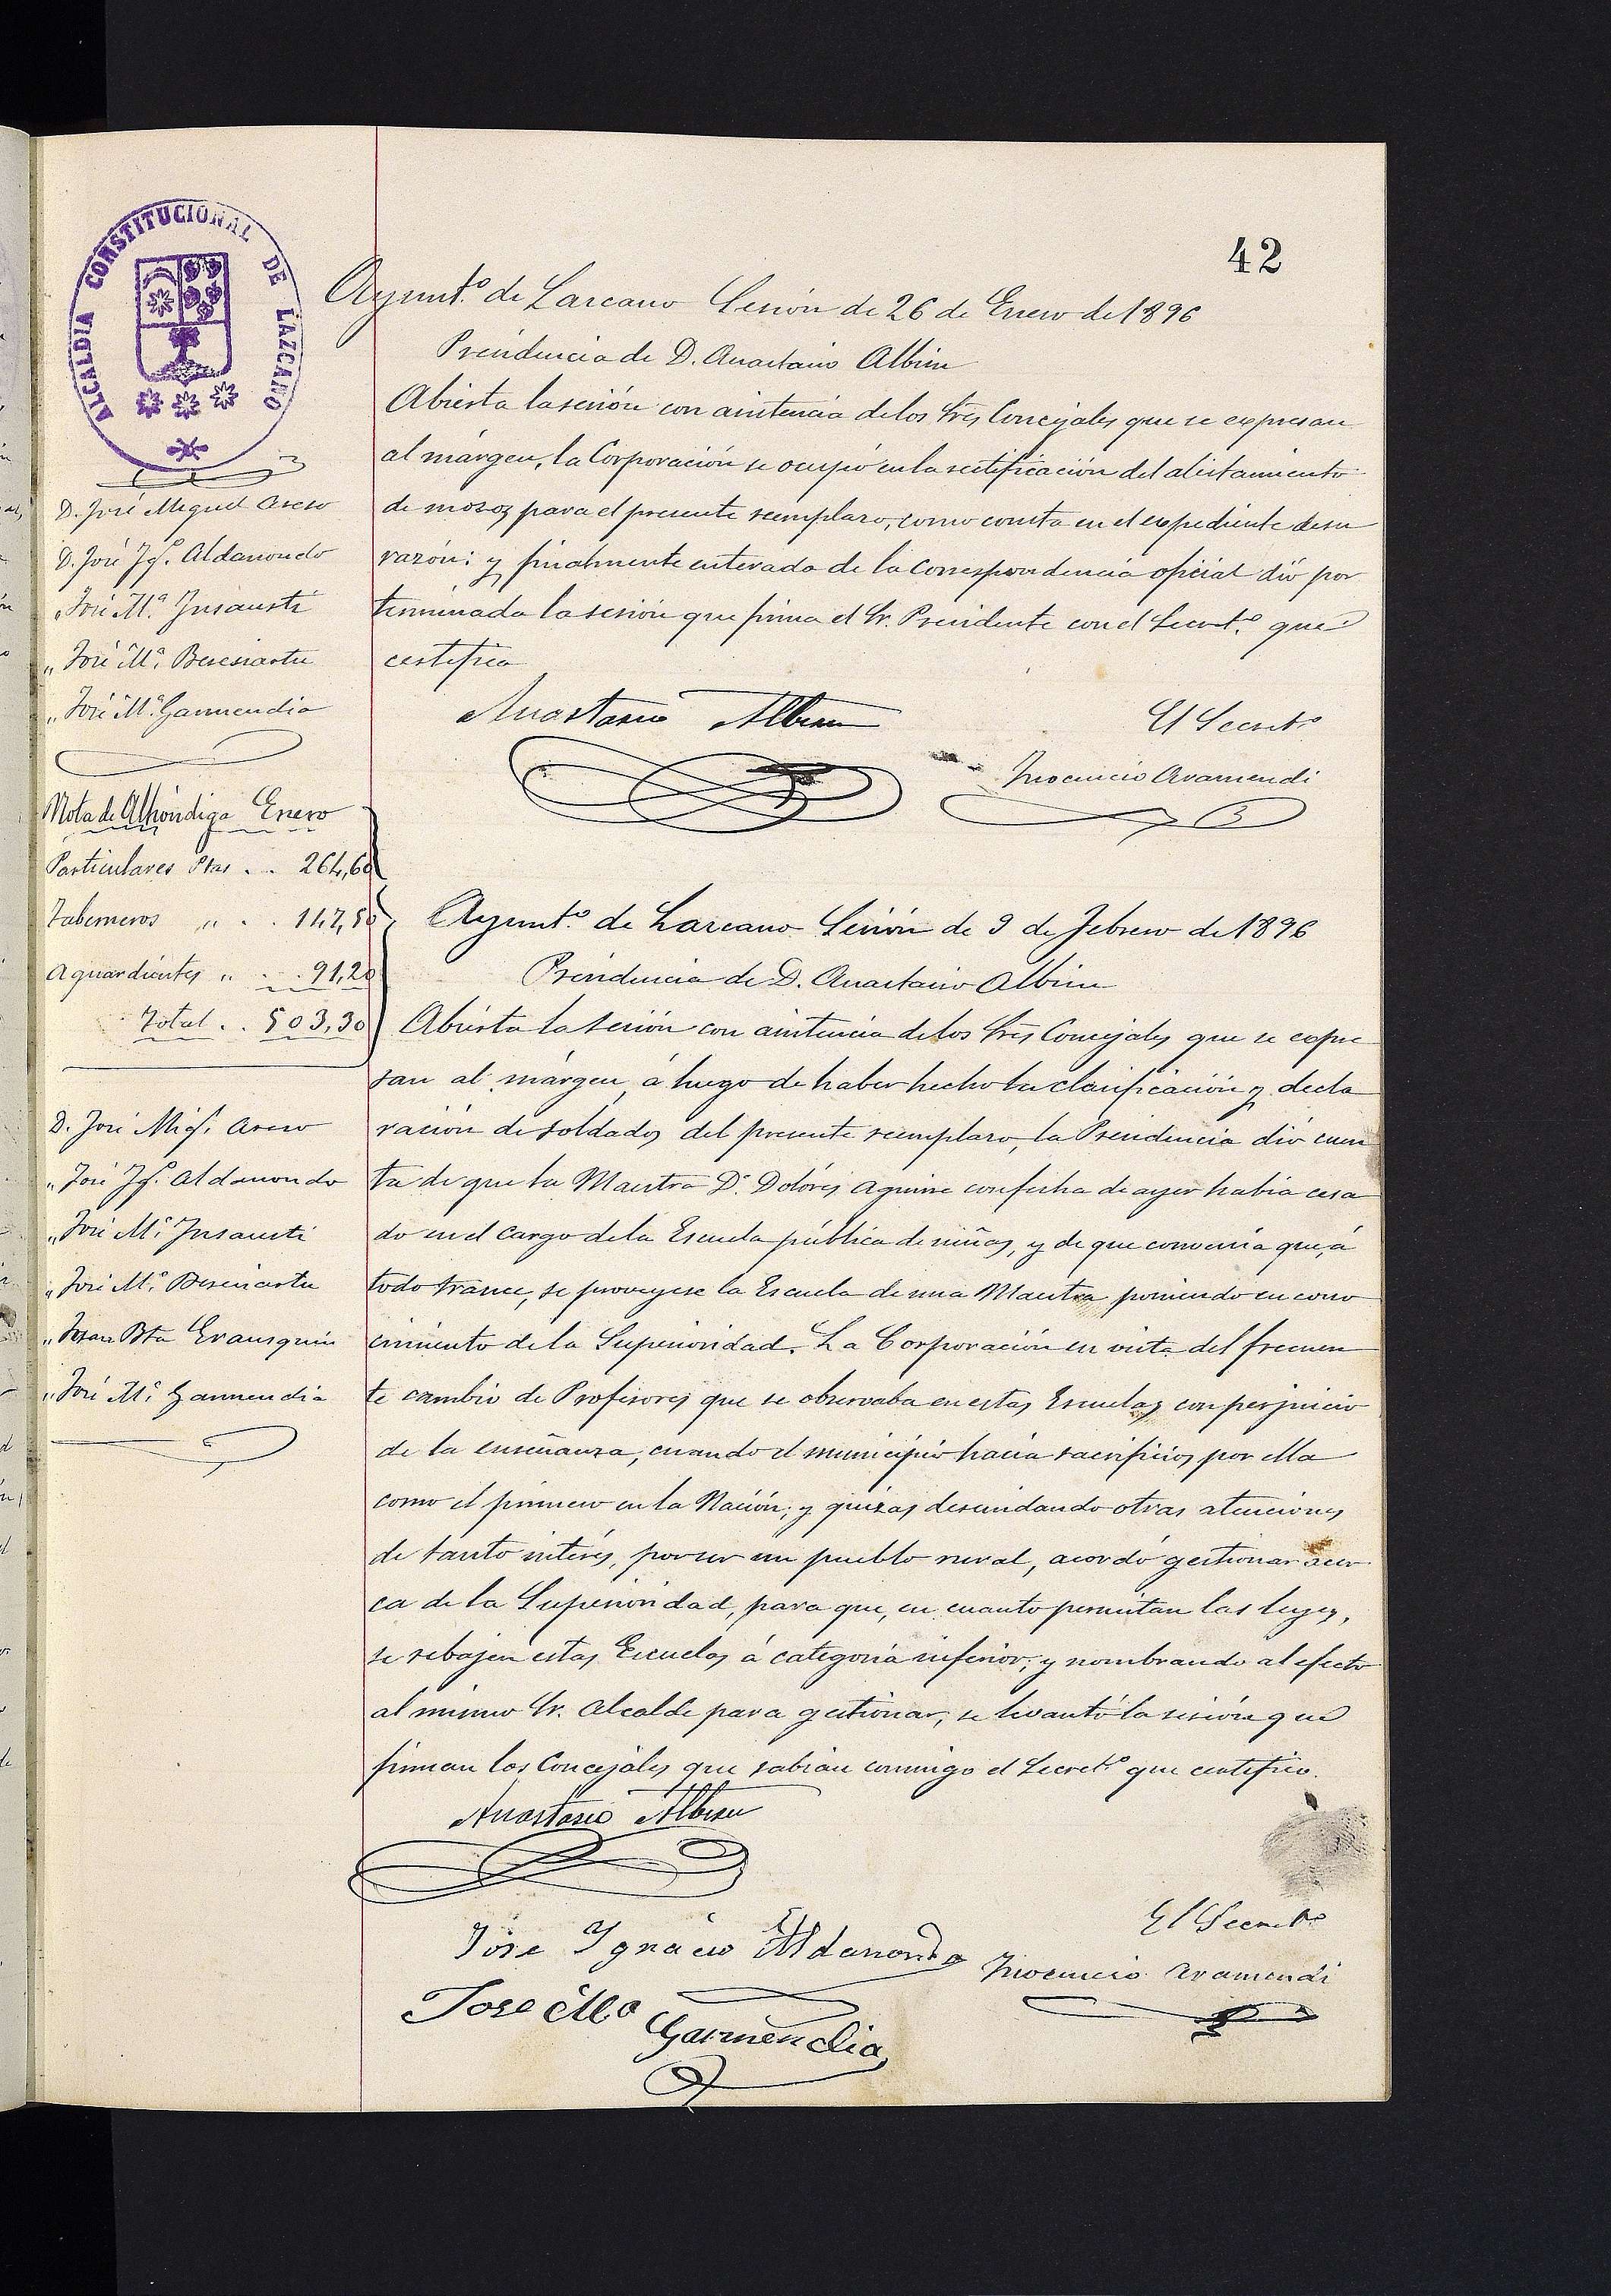 42
ALCALDIA CONSTITUCIONAL DE LAZCANO
Ayunt.º de Lazcano Sesión de 26 de Enero de 1896
Presidencia de D. Anastasio Albisu
Abierta la sesión con asistencia de los Srēs Concejales que se expresan
al márgen, la Corporación se ocupó en la rectificación del alistamiento
de mosos para el presente reemplazo, como consta en el expediente de su
razón: y finalmente enterada de la correspondencia oficial dió por
terminada la sesión que firma el Sr. Presidente con el Secret.º que
certifica
D. José Miguel Aseso
D. José Ig.º Aldanondo
„ José M.ª Insausti
„ José M.ª Beresiartu
„ José M.ª Garmendia
Anastasio Albisu
El Secretº
Inocencio Aramendi
Nota de Alhóndiga Enero
Particulares Ptas . . 264,60
Taberneros „ . . 147,50
Aguardientes „ . . 91,20
Total . . 503,30
Ayunt.º de Lazcano Sesión de 9 de Febrero de 1896
Presidencia de D. Anastasio Albisu
Abierta la sesión con asistencia de los Srēs Concejales que se expre
san al márgen, á luego de haber hecho la clasificación y decla
ración de soldados del presente reemplazo, la Presidencia dió cuen
ta de que la Maestra D.ª Dolóres Aguirre con fecha de ayer había cesa
do en el cargo de la Escuela pública de niñas, y de que convenía que, á
todo trance, se proveyese la Escuela de una Maestra poniendo en cono
cimiento de la Superioridad. La Corporación en vista del frecuen
te cambio de Profesores que se observaba en estas Escuelas con perjuicio
de la enseñanza, cuando el municipio hacía sacrificios por ella
como el primero en la Nación; y quizas descuidando otras atenciones
de tanto interés, por ser un pueblo rural, acordó gestionar acer
ca de la Superioridad, para que, en cuanto permitan las leyes,
se rebajen estas Escuelas á categoría inferior; y nombrando al efecto
al mismo Sr. Alcalde para gestionar, se levantó la sesión que
firman los Concejales que sabían conmigo el Secretº que certifico.
D. José Mig.l Aseso
„ José Ig.º Aldanondo
„ José M.ª Insausti
„ José M.ª Beresiartu
„ Juan Bta Erausquin
„ José M.ª Garmendia
Anastasio Albisu
José Ignacio Aldanondo
El Secretº
Inocencio Aramendi
Jose Mª Garmendia